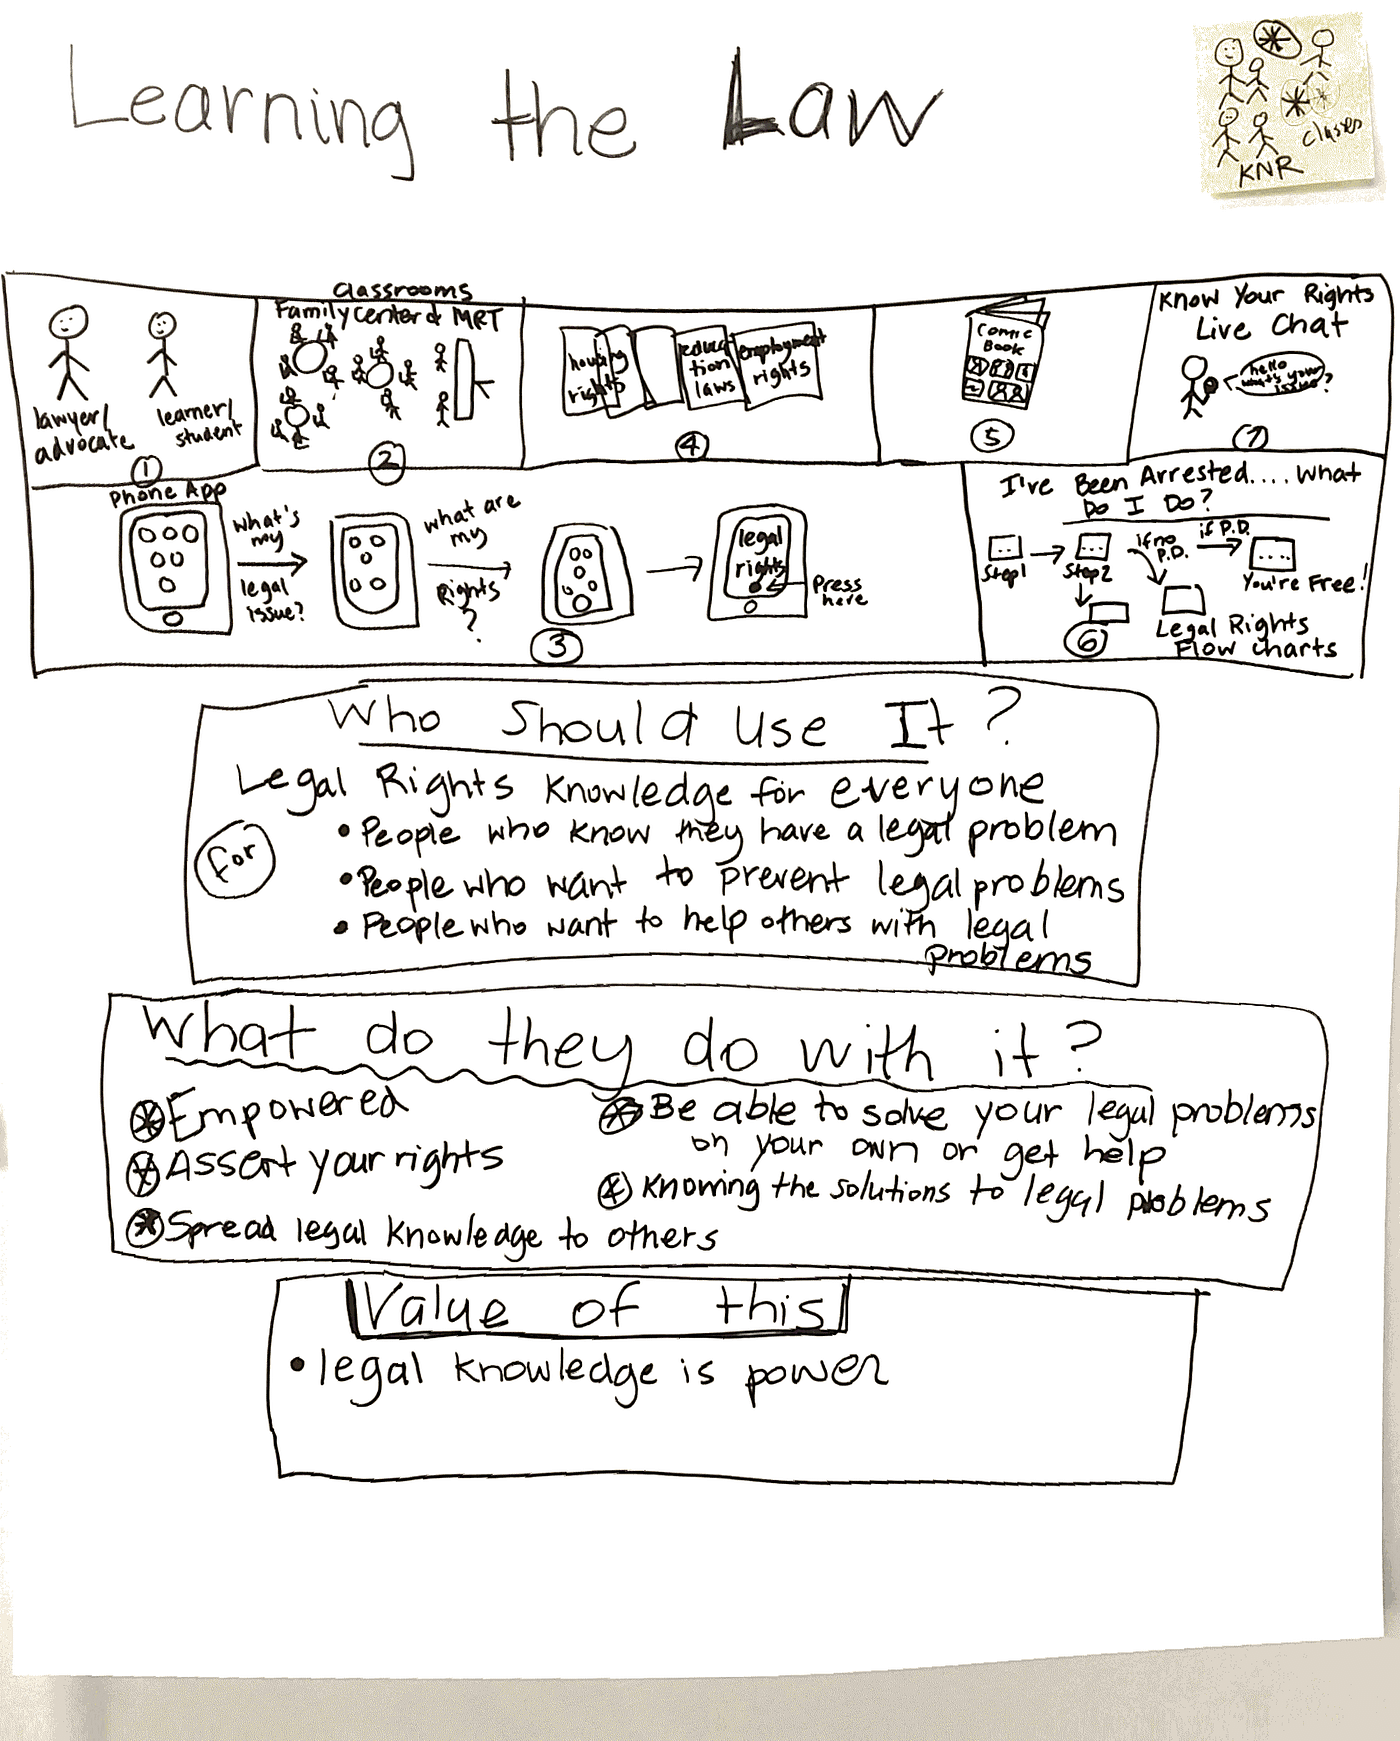 Learning the Law
classes
KNR
lawyer/
advocate
learner/
student
1
Classrooms
Family center & MRT
2
housing
rights
educa
tion
laws
employment
rights
4
Comic
Book
5
Know Your Rights
Live Chat
hello
what's your
issue?
7
Phone App
what's
my
legal
issue?
what are
my
Rights
?
legal
rights
Press
here
3
I've Been Arrested.... What
Do I Do?
Step1
Step2
if no
P.D.
if P.D.
You're Free!
Legal Rights
Flow Charts
6
Who Should Use It?
Legal Rights Knowledge for everyone
For
• People who know they have a legal problem
• People who want to prevent legal problems
• People who want to help others with legal
problems
What do they do with it?
Empowered
Assert your rights
Spread legal knowledge to others
Be able to solve your legal problems
on your own or get help
Knowing the solutions to legal problems
Value of this
• legal knowledge is power